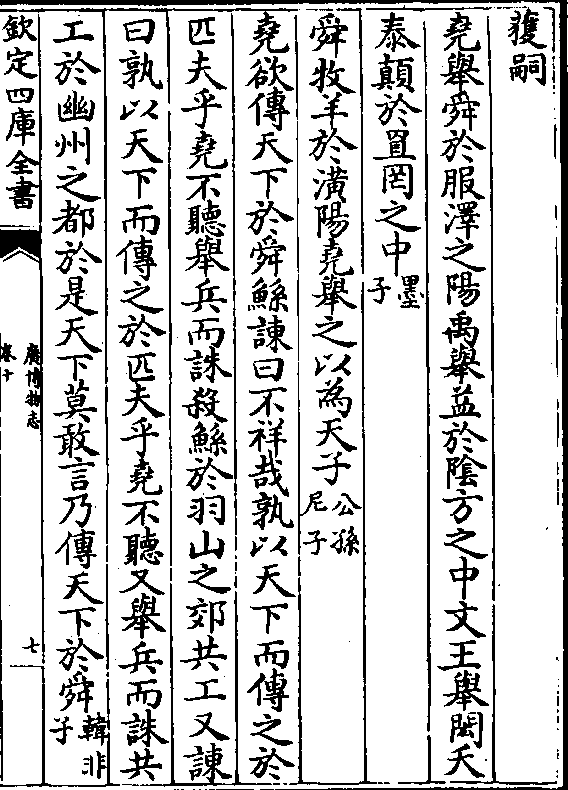 獲嗣
堯舉舜於服澤之陽禹舉益於陰方之中文王舉閎夭
泰顛於罝罔之中墨子
舜牧羊於潢陽堯舉之以為天子公孫尼子
堯欲傳天下於舜鯀諫曰不祥哉孰以天下而傳之於
匹夫乎堯不聽舉兵而誅殺鯀於羽山之郊共工又諫
曰孰以天下而傳之於匹夫乎堯不聽又舉兵而誅共
工於幽州之都於是天下莫敢言乃傳天下於舜韓非子
欽定四庫全書
廣博物志
卷十
七